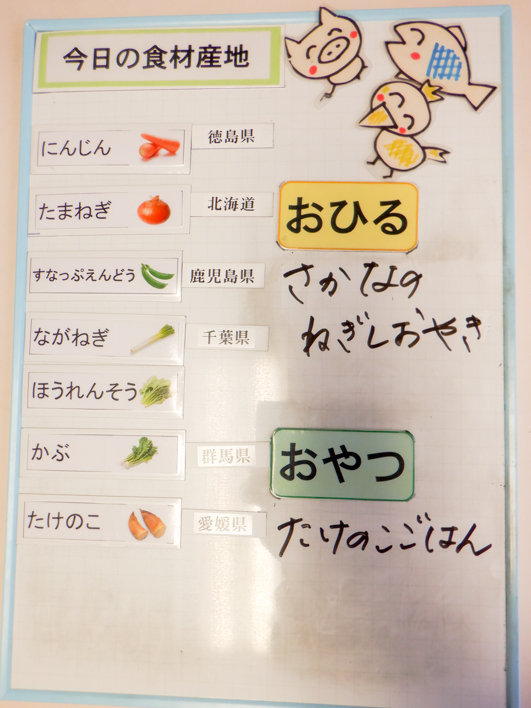 今日の食材産地
にんじん 徳島県
たまねぎ 北海道
すなっぷえんどう 鹿児島県
ながねぎ 千葉県
ほうれんそう
かぶ 群馬県
たけのこ 愛媛県
おひる
さかなの
ねぎしおやき
おやつ
たけのこごはん